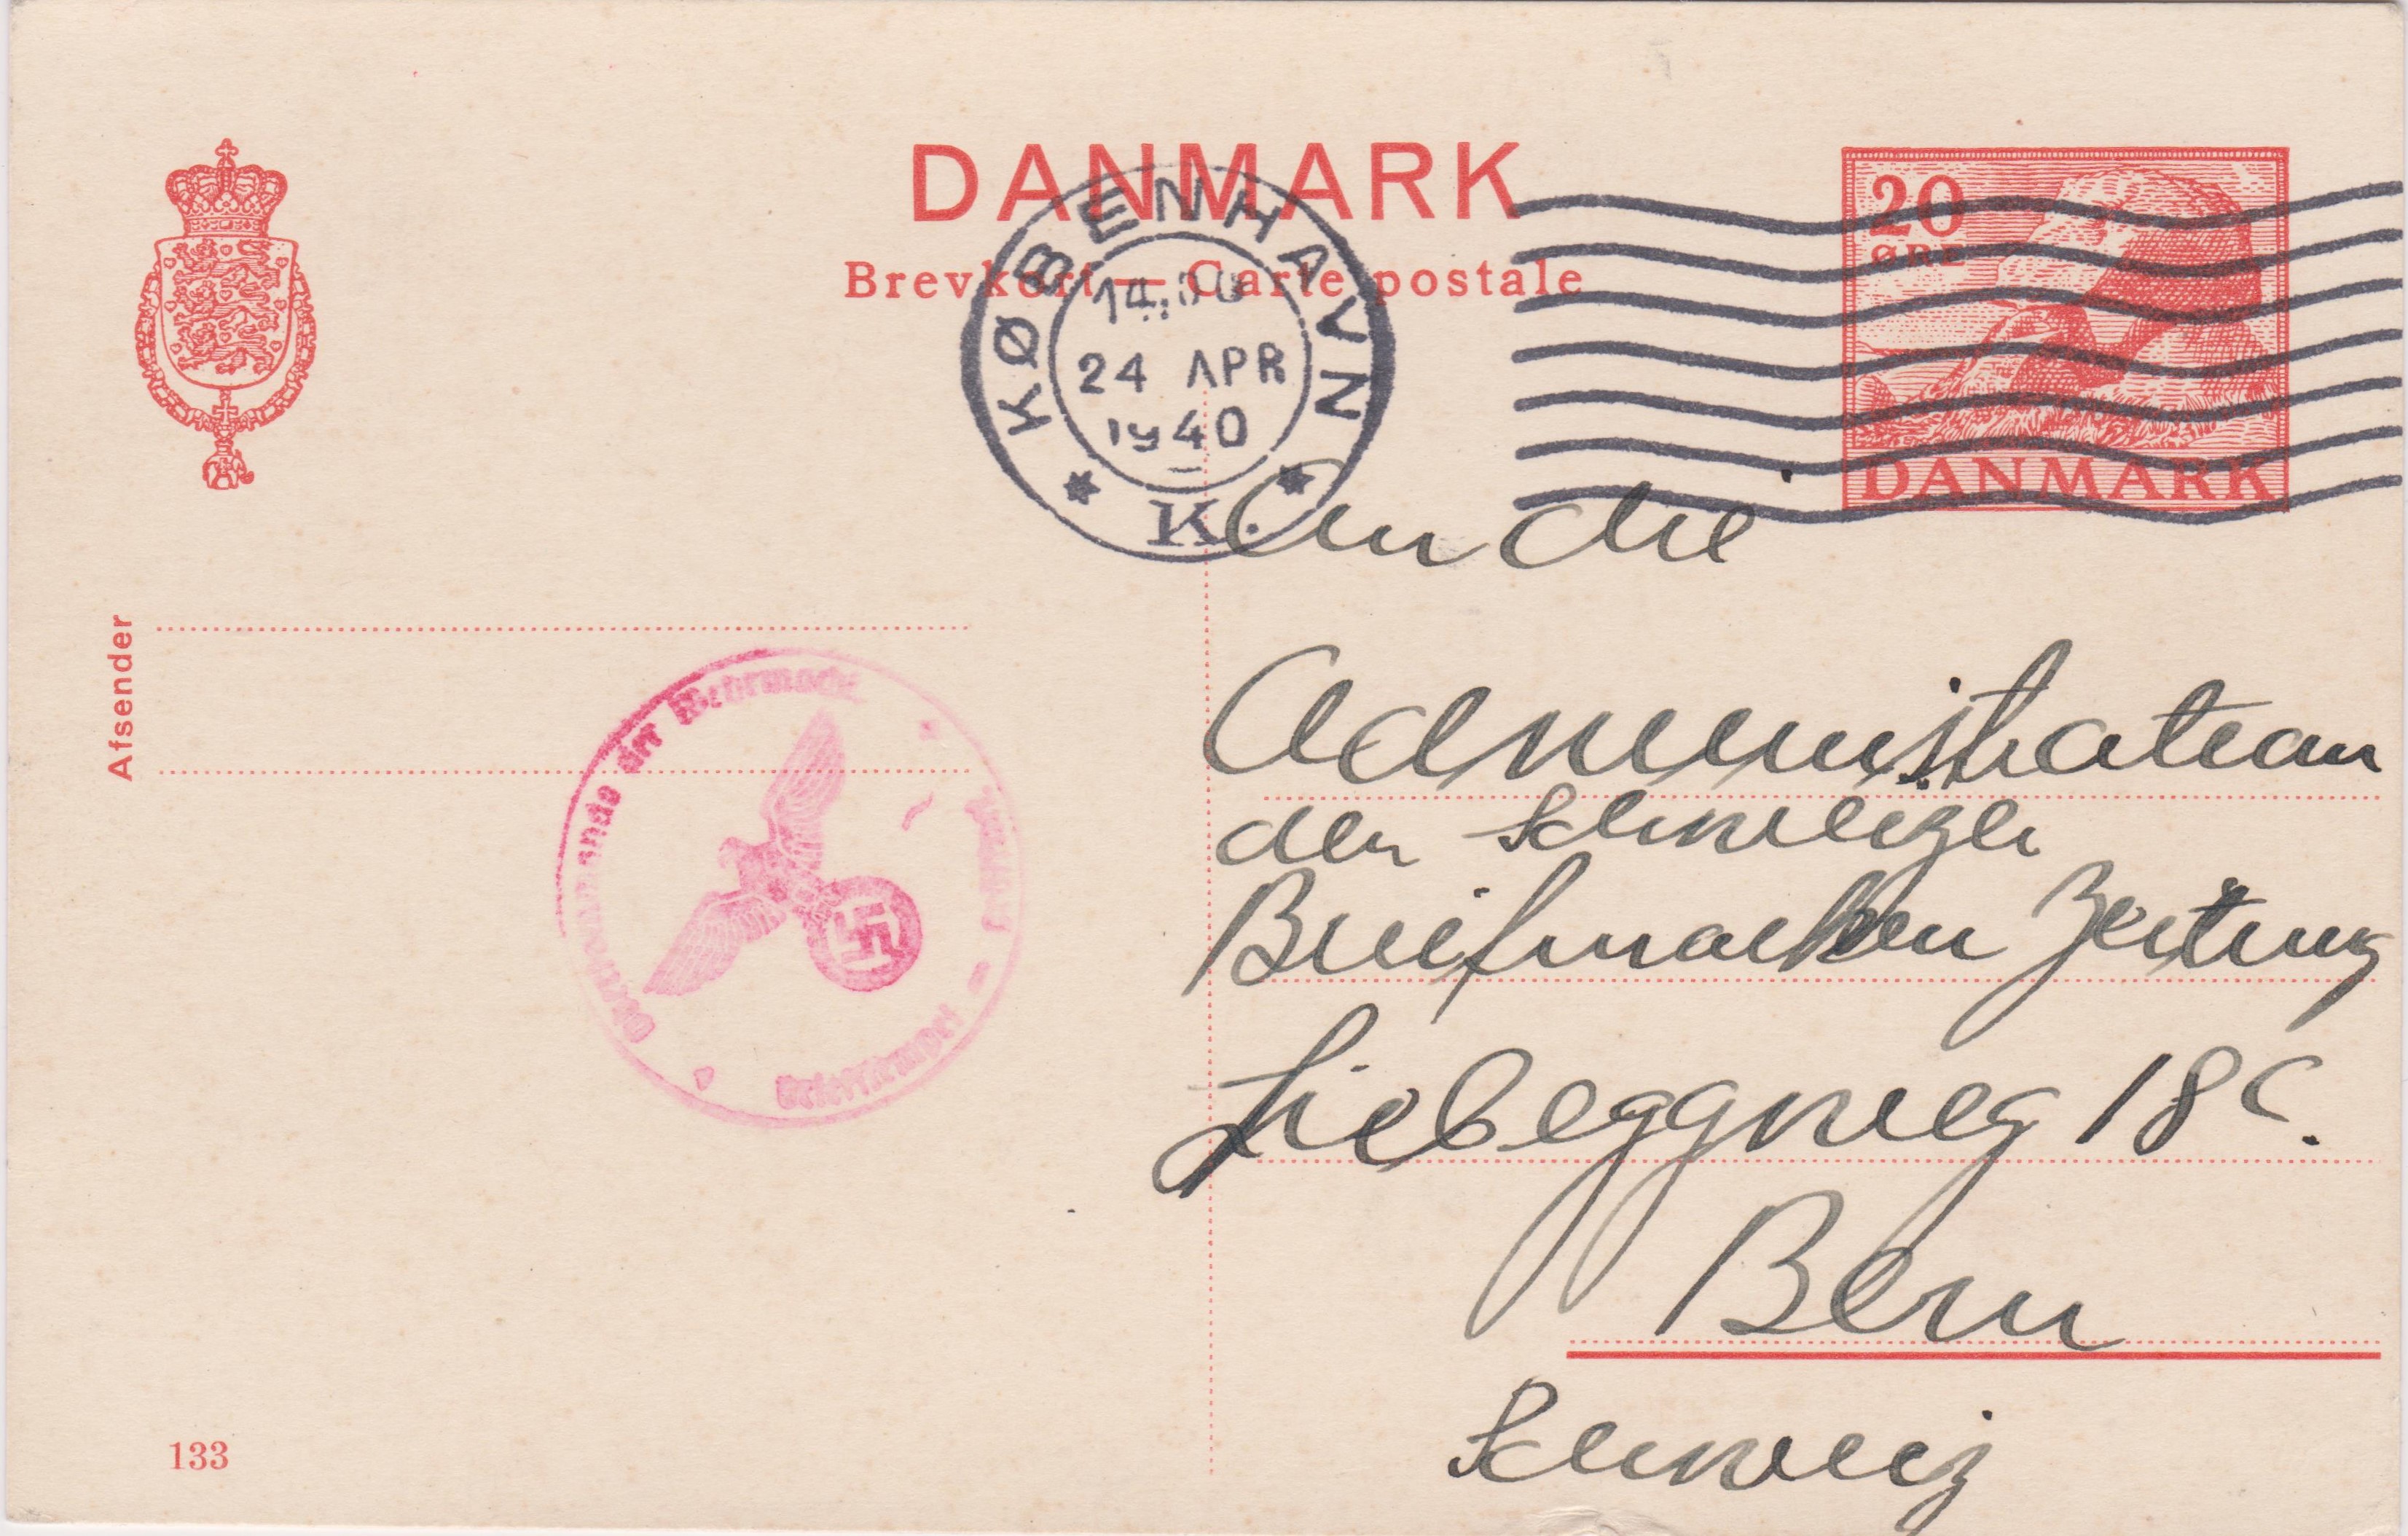 DANMARK
Brevkort — Carte postale
20
ØRE
DANMARK
KØBENHAVN
24 APR
1940
K.
An die
Administration
der Schweizer
Briefmarken Zeitung
Liebeggweg 18 c.
Bern
Schweiz
Afsender
Oberkommando der Wehrmacht
Briefstempel
133